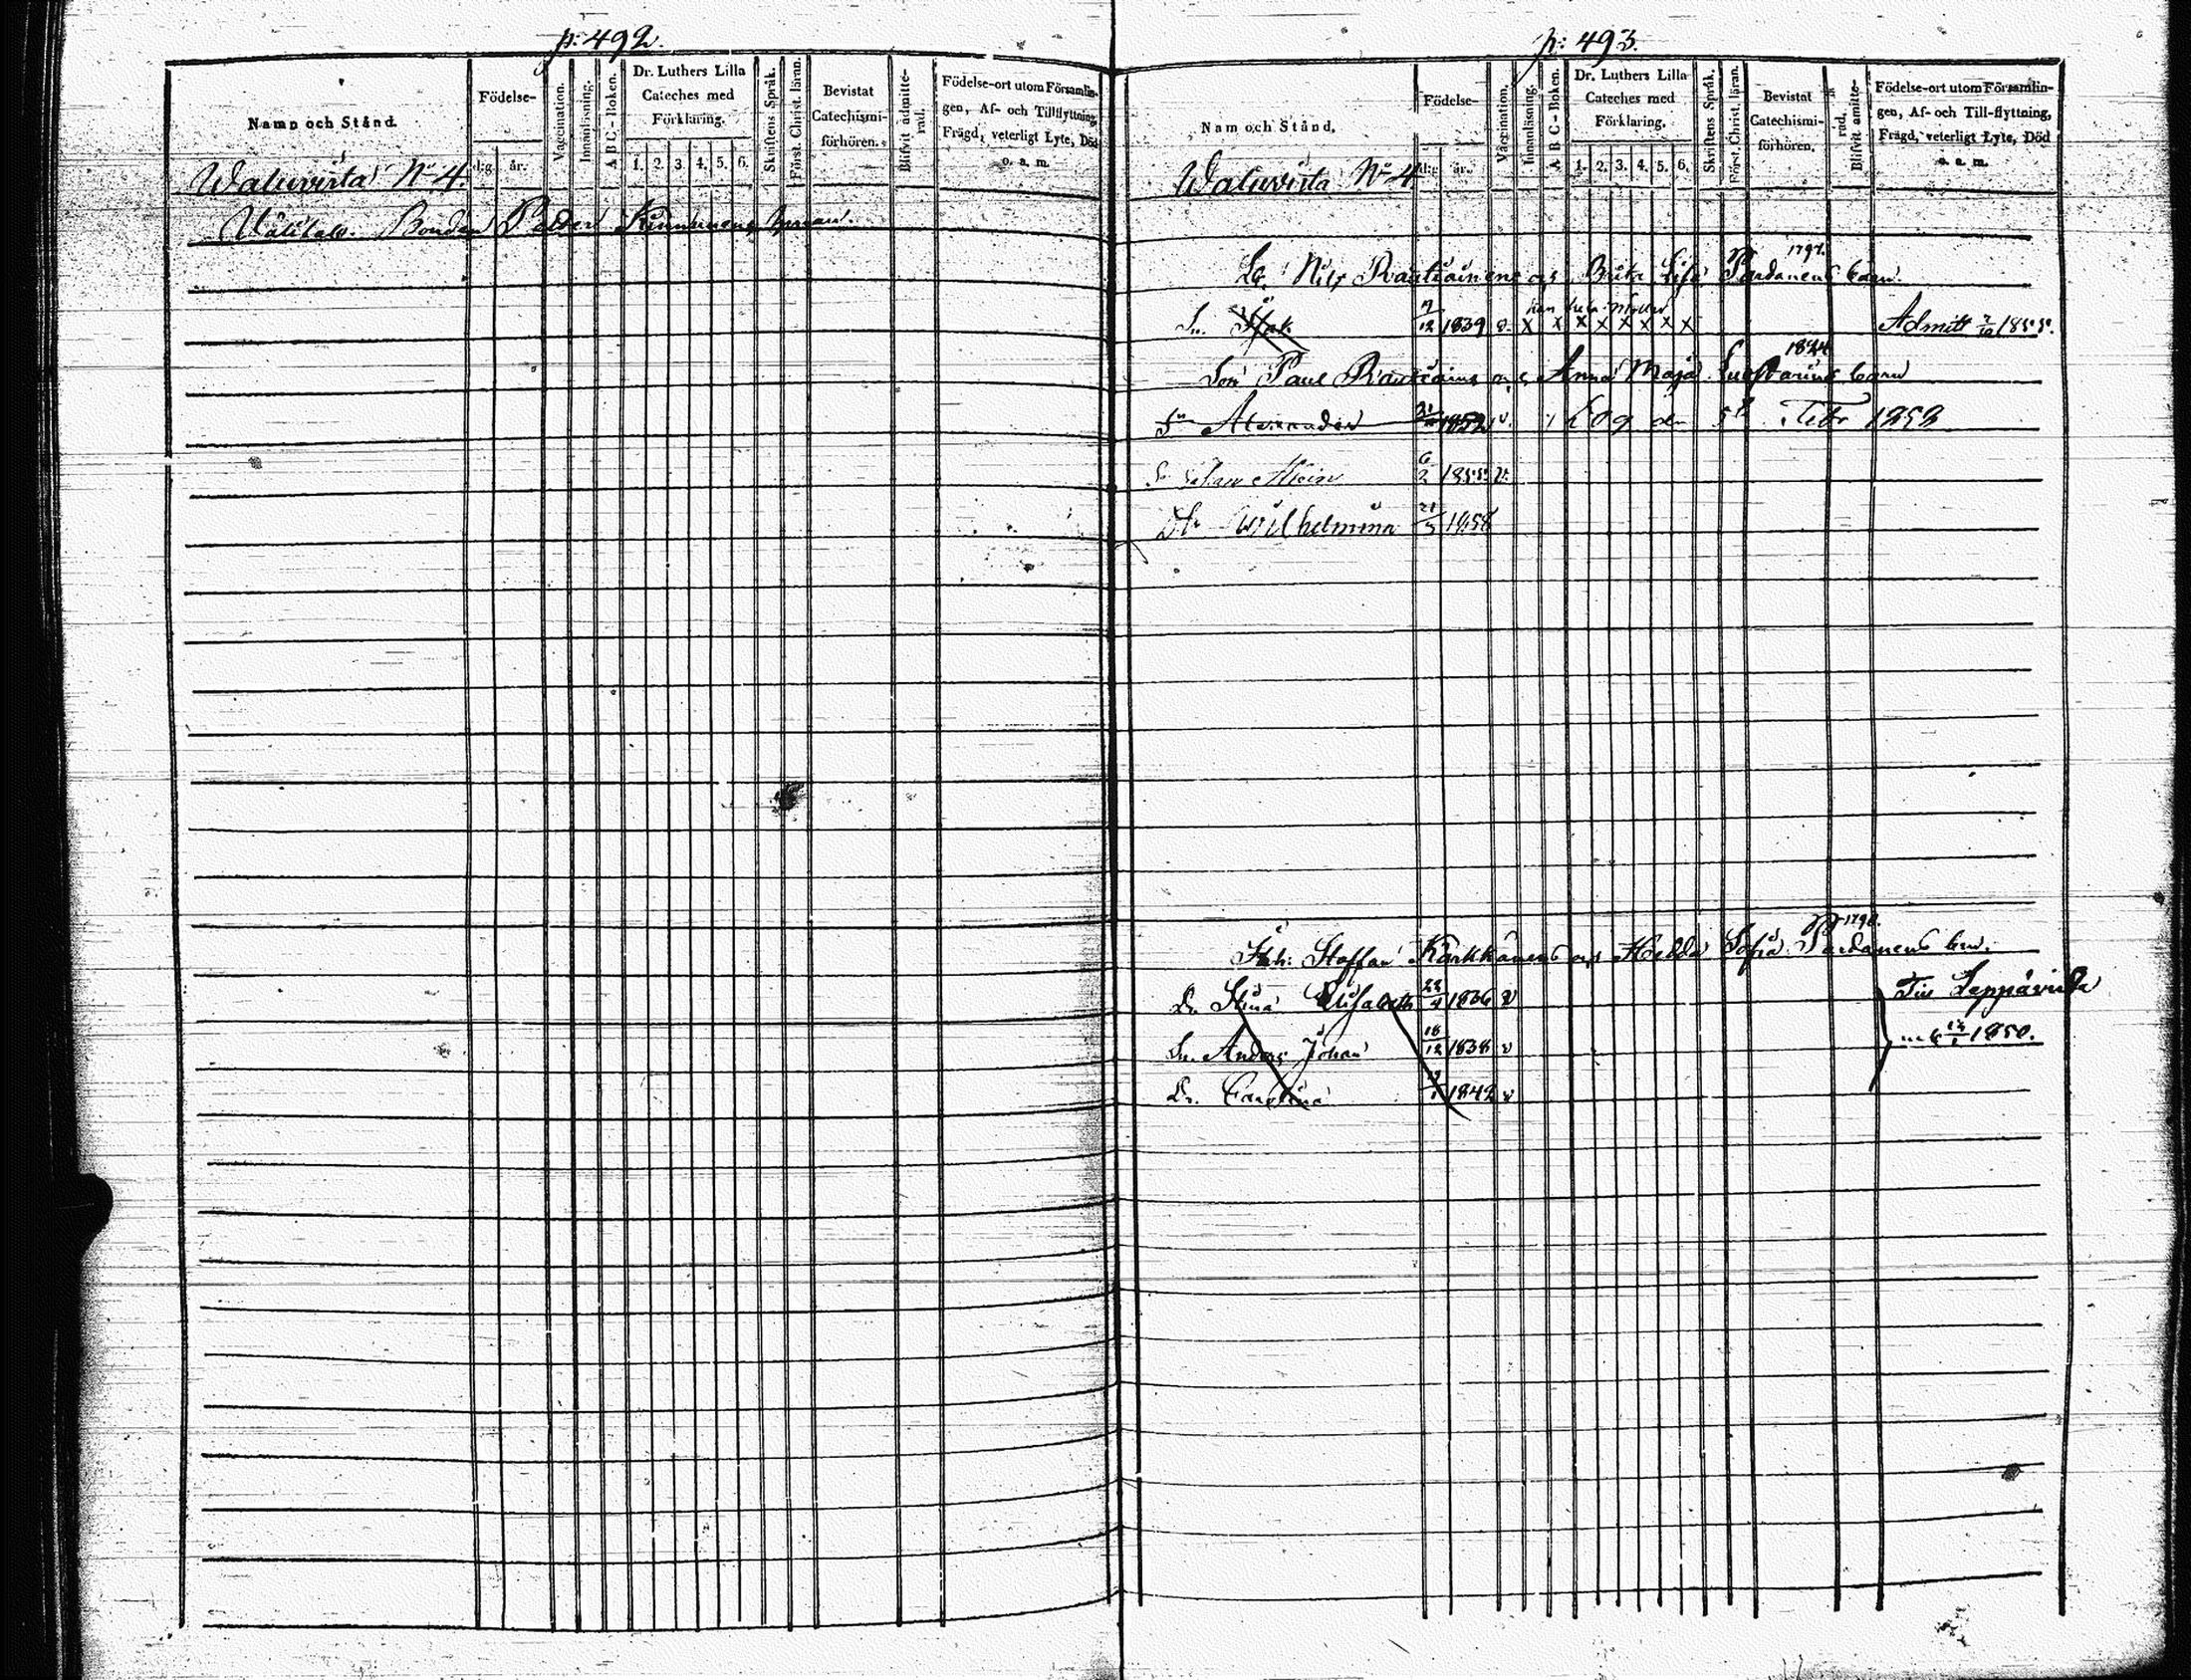 p: 492.
Namn och Stånd.
Födelse-
dag.
år.
Vaccination.
Innanläsning.
A B C - Boken.
Dr. Luthers Lilla
Cateches med
Förklaring.
1. 2. 3. 4. 5. 6.
Skriftens Språk.
Först. Christ. läran.
Bevistat
Catechismi-
förhören.
Blifvit admitte-
rad.
Födelse-ort utom Församlin-
gen, Af- och Tillflyttning,
Frägd, veterligt Lyte, Död
o. a. m.
Waluvirta N 4.
Bonden Petter Kinnunens
p: 493.
Nam och Stånd.
Födelse-
dag
år.
Vaccination.
Innanläsning.
A B C - Boken.
Dr. Luthers Lilla
Cateches med
Förklaring.
1. 2. 3. 4. 5. 6.
Skriftens Språk.
Först. Christ. läran.
Bevistat
Catechismi-
förhören.
Blifvit amitte-
rad.
Födelse-ort utom Församlin-
gen, Af- och Till-flyttning,
Frägd, veterligt Lyte, Död
o. a. m.
Waluvirta N 4
1797.
Nils Rautiainens o. Brita Lisa Pardanens barn.
Sn. 12 1839 v. x x x x x x x x Admitt 1855.
Son Paul Rautiains o Anna Maja barn
Sn Alexander 1852 v. Dog den 5 Febr 1853
6/2 1855 v.
Dr Wilhelmina 21/3 1858
1798.
Inh: Staffan Karkkänens o Hedda Sofia Pardanens brn.
Dr. Stina Elisabeth 23/4 1836 v Till Leppävirta
Sn. Anders Johan 18/12 1838 v 1850.
Dr. Carolina 1842 v